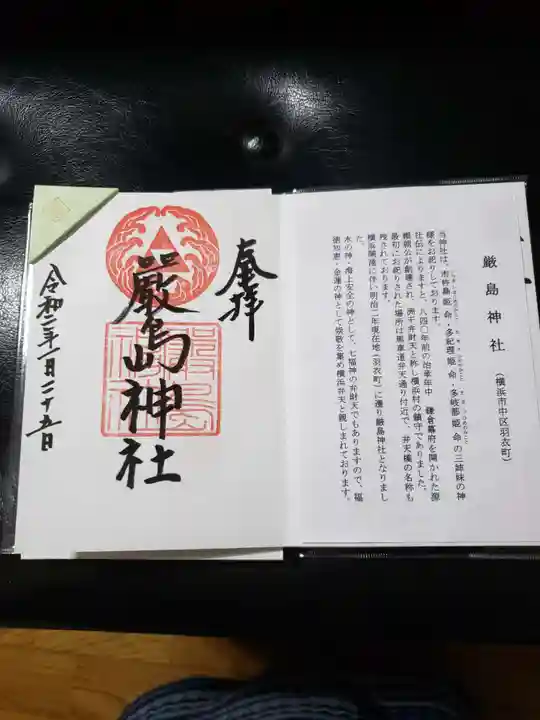 厳島神社 （横浜市中区羽衣町）
当神社は、市杵島姫命・多紀理姫命・多岐都姫命の三姉妹の神
様をお祀りしております。
社伝によりますと、八四〇年前の治承年中 鎌倉幕府を開かれた源
頼朝公が創建され、洲干弁財天と称し横浜村の鎮守でありました。
最初にお祀りされた場所は馬車道弁天通り付近で、弁天橋の名称も
残されております。
横浜開港に伴い明治二年現在地（羽衣町）に遷り厳島神社となりまし
た。
水の神・海上安全の神として、七福神の弁財天でもありますので、福
徳知恵・金運の神として崇敬を集め横浜弁天と親しまれております。
奉拝
厳島神社
令和二年一月二十五日